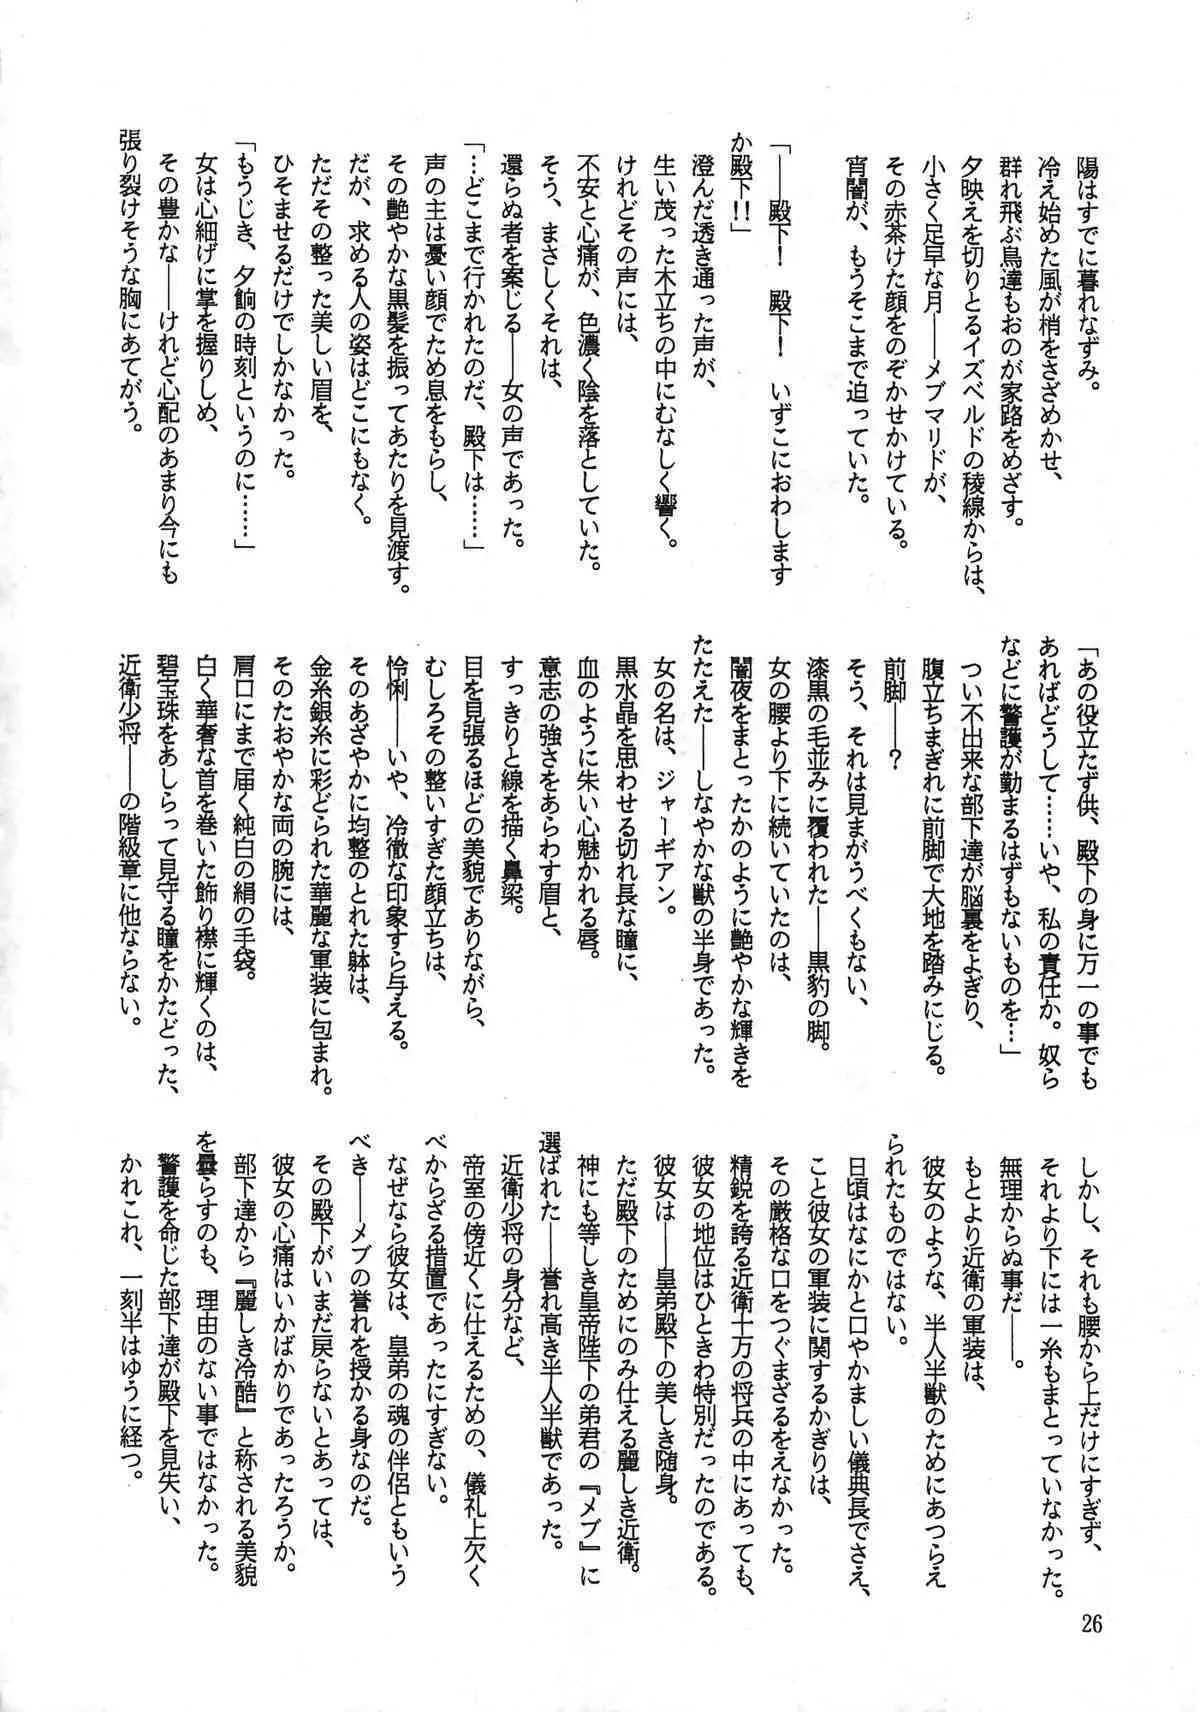 陽はすでに暮れなずみ。
冷え始めた風が梢をさざめかせ、
群れ飛ぶ鳥達もおのが家路をめざす。
夕映えを切りとるイズベルドの稜線からは、
小さく足早な月――メブマリドが、
その赤茶けた顔をのぞかせかけている。
宵闇が、もうそこまで迫っていた。
「――殿下！　殿下！　いずこにおわします
か殿下!!」
澄んだ透き通った声が、
生い茂った木立ちの中にむなしく響く。
けれどその声には、
不安と心痛が、色濃く陰を落としていた。
そう、まさしくそれは、
還らぬ者を案じる――女の声であった。
「…どこまで行かれたのだ、殿下は……」
声の主は憂い顔でため息をもらし、
その艶やかな黒髪を振ってあたりを見渡す。
だが、求める人の姿はどこにもなく。
ただその整った美しい眉を、
ひそませるだけでしかなかった。
「もうじき、夕餉の時刻というのに……」
女は心細げに掌を握りしめ、
その豊かな――けれど心配のあまり今にも
張り裂けそうな胸にあてがう。
「あの役立たず供、殿下の身に万一の事でも
あればどうして……いや、私の責任か。奴ら
などに警護が勤まるはずもないものを…」
つい不出来な部下達が脳裏をよぎり、
腹立ちまぎれに前脚で大地を踏みにじる。
前脚――？
そう、それは見まがうべくもない、
漆黒の毛並みに覆われた――黒豹の脚。
女の腰より下に続いていたのは、
闇夜をまとったかのように艶やかな輝きを
たたえた――しなやかな獣の半身であった。
女の名は、ジャーギアン。
黒水晶を思わせる切れ長な瞳に、
血のように朱い心魅かれる唇。
意志の強さをあらわす眉と、
すっきりと線を描く鼻梁。
目を見張るほどの美貌でありながら、
むしろその整いすぎた顔立ちは、
怜悧――いや、冷徹な印象すら与える。
そのあざやかに均整のとれた躰は、
金糸銀糸に彩どられた華麗な軍装に包まれ。
そのたおやかな両の腕には、
肩口にまで届く純白の絹の手袋。
白く華奢な首を巻いた飾り襟に輝くのは、
碧宝珠をあしらって見守る瞳をかたどった、
近衛少将――の階級章に他ならない。
しかし、それも腰から上だけにすぎず、
それより下には一糸もまとっていなかった。
無理からぬ事だ――。
もとより近衛の軍装は、
彼女のような、半人半獣のためにあつらえ
られたものではない。
日頃はなにかと口やかましい儀典長でさえ、
こと彼女の軍装に関するかぎりは、
その厳格な口をつぐまざるをえなかった。
精鋭を誇る近衛十万の将兵の中にあっても、
彼女の地位はひときわ特別だったのである。
彼女は――皇弟殿下の美しき随身。
ただ殿下のためにのみ仕える麗しき近衛。
神にも等しき皇帝陛下の弟君の『メブ』に
選ばれた――誉れ高き半人半獣であった。
近衛少将の身分など、
帝室の傍近くに仕えるための、儀礼上欠く
べからざる措置であったにすぎない。
なぜなら彼女は、皇弟の魂の伴侶ともいう
べき――メブの誉れを授かる身なのだ。
その殿下がいまだ戻らないとあっては、
彼女の心痛はいかばかりであったろうか。
部下達から『麗しき冷酷』と称される美貌
を曇らすのも、理由のない事ではなかった。
警護を命じた部下達が殿下を見失い、
かれこれ、一刻半はゆうに経つ。
26